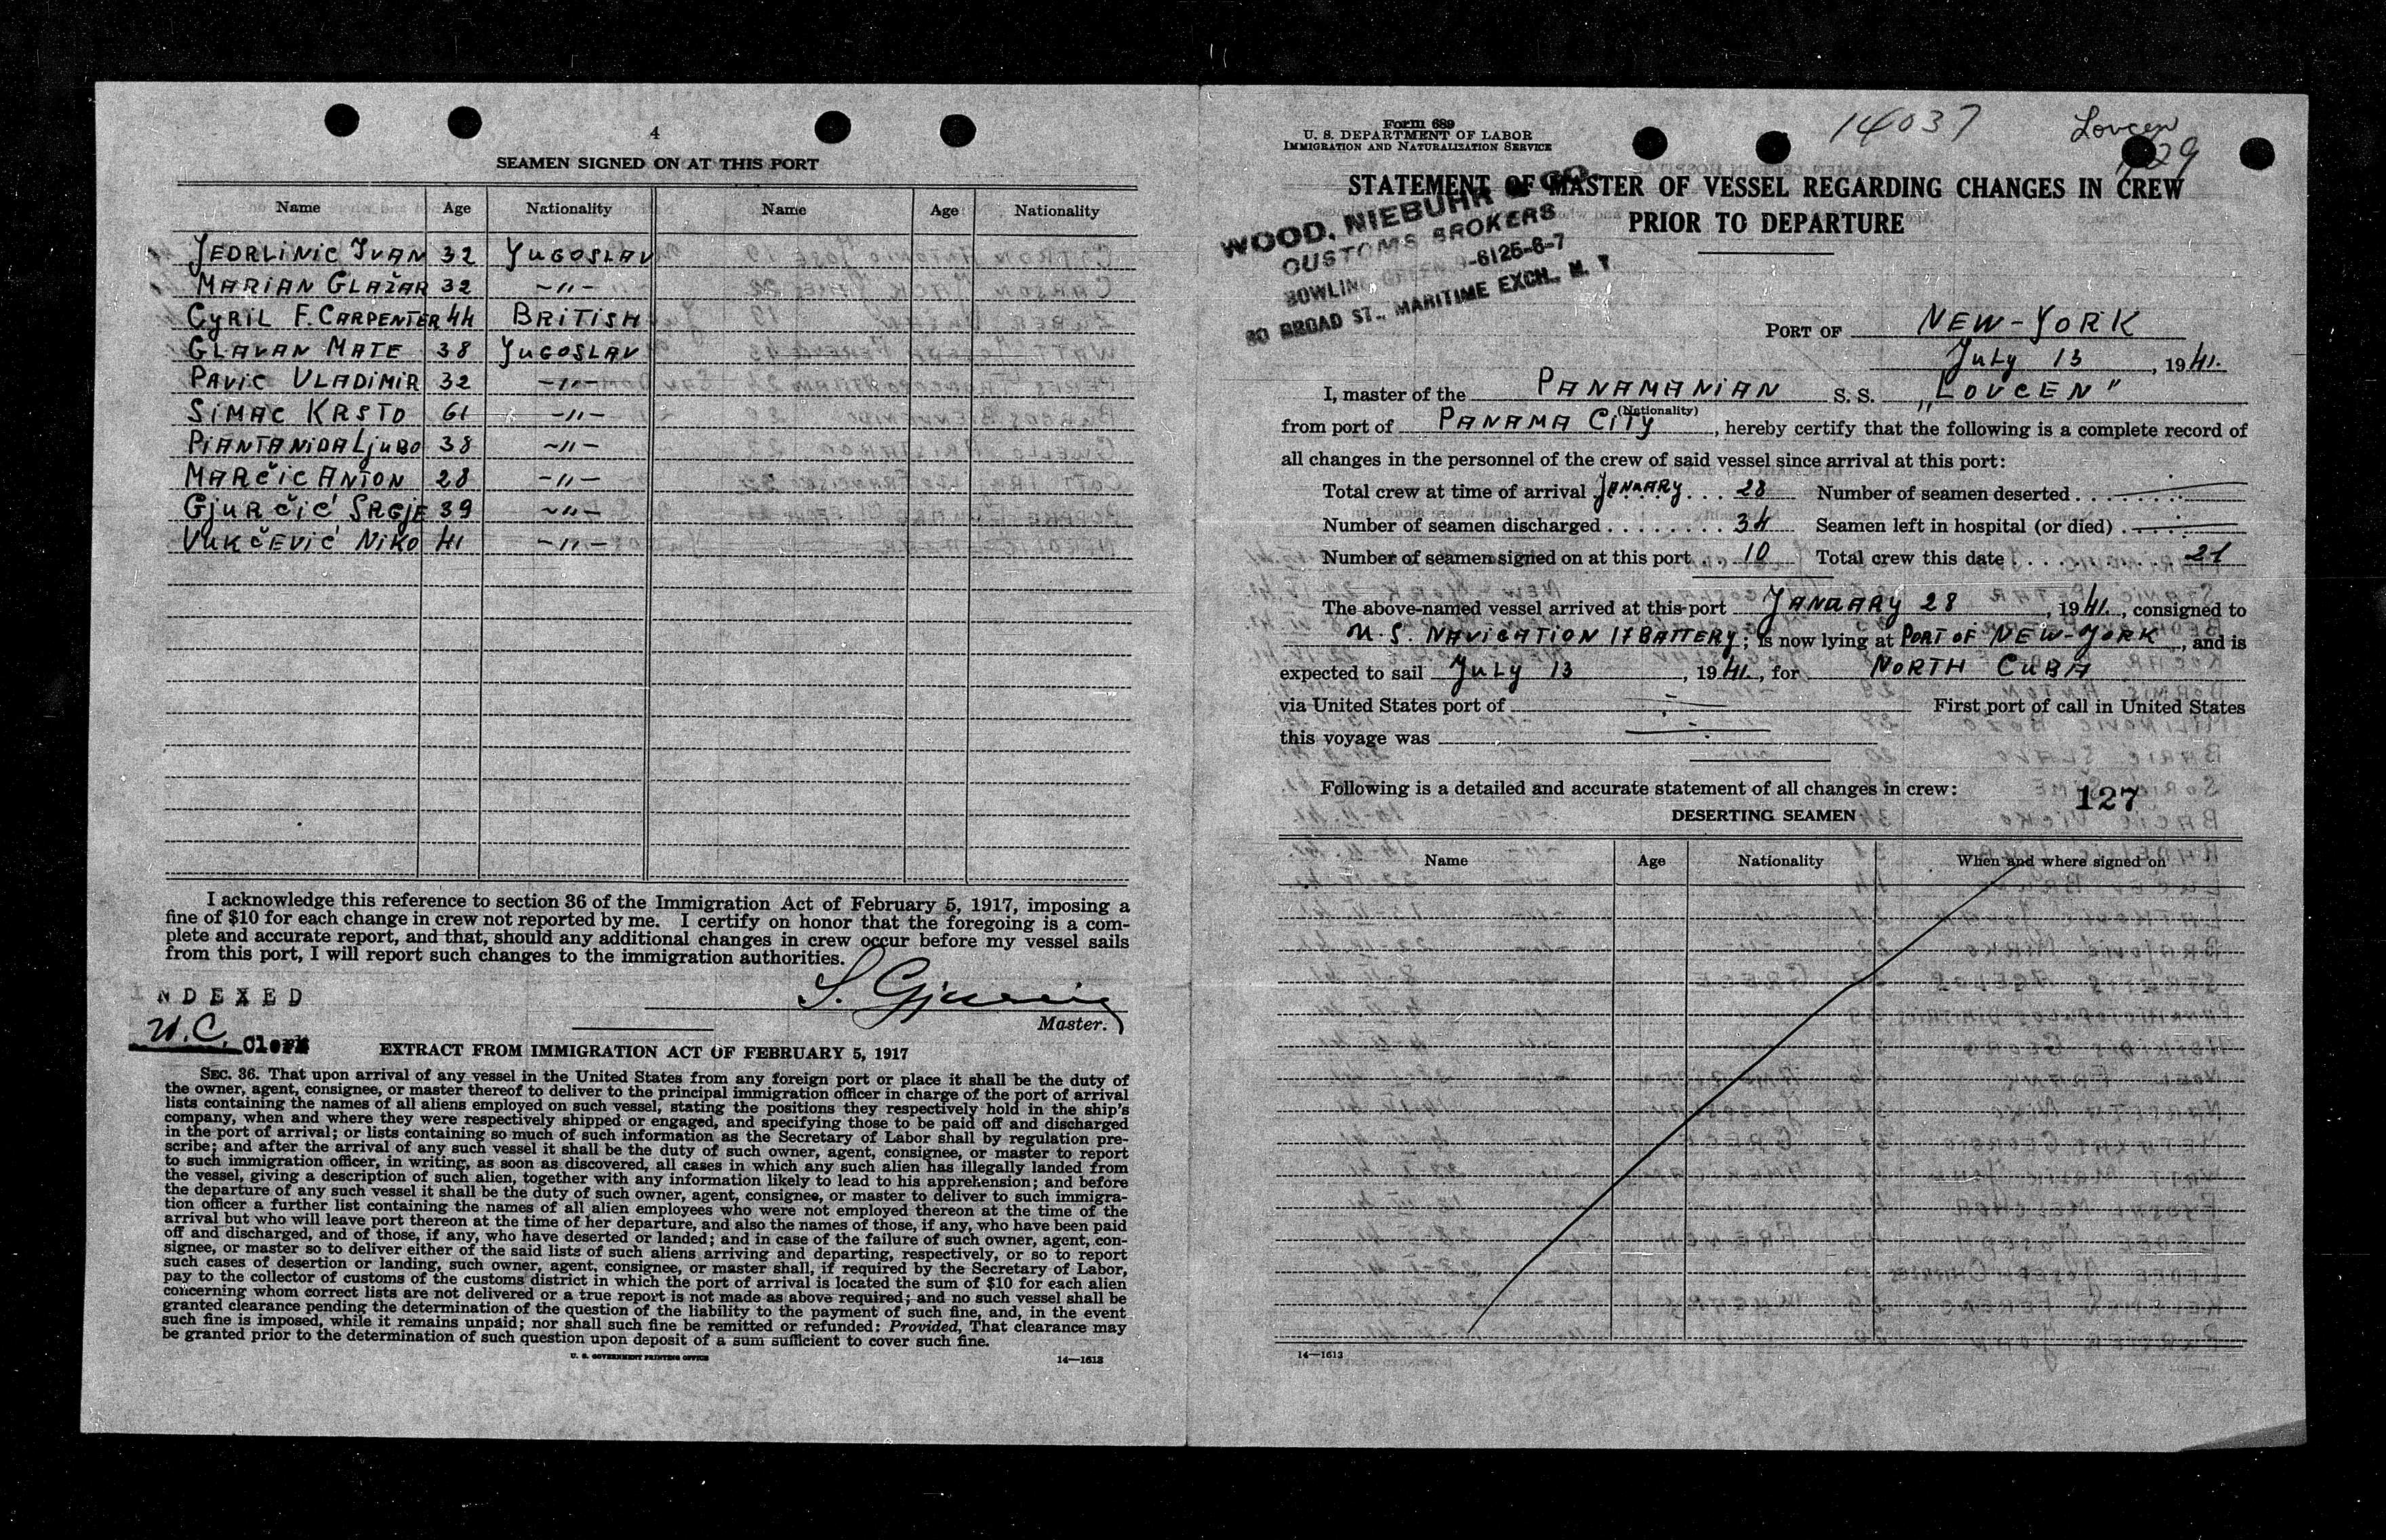 4
SEAMEN SIGNED ON AT THIS PORT
Name Age Nationality Name Age Nationality
JEDRLINIC IVAN 32 YUGOSLAV
MARIAN GLAŽAR 32 -"-
CYRIL F. CARPENTER 44 BRITISH
GLAVAN MATE 38 YUGOSLAV
PAVIC VLADIMIR 32 -"-
SIMAC KRSTO 61 -"-
PIANTANIDA LJUBO 38 -"-
MARČIC ANTON 28 -"-
GJURČIĆ SRGJE 39 -"-
VUKČEVIĆ NIKO 41 -"-
I acknowledge this reference to section 36 of the Immigration Act of February 5, 1917, imposing a
fine of $10 for each change in crew not reported by me. I certify on honor that the foregoing is a com-
plete and accurate report, and that, should any additional changes in crew occur before my vessel sails
from this port, I will report such changes to the immigration authorities.
INDEXED
S. Gjurcic
Master.
W.C. Clerk
EXTRACT FROM IMMIGRATION ACT OF FEBRUARY 5, 1917
SEC. 36. That upon arrival of any vessel in the United States from any foreign port or place it shall be the duty of
the owner, agent, consignee, or master thereof to deliver to the principal immigration officer in charge of the port of arrival
lists containing the names of all aliens employed on such vessel, stating the positions they respectively hold in the ship's
company, when and where they were respectively shipped or engaged, and specifying those to be paid off and discharged
in the port of arrival; or lists containing so much of such information as the Secretary of Labor shall by regulation pre-
scribe; and after the arrival of any such vessel it shall be the duty of such owner, agent, consignee, or master to report
to such immigration officer, in writing, as soon as discovered, all cases in which any such alien has illegally landed from
the vessel, giving a description of such alien, together with any information likely to lead to his apprehension; and before
the departure of any such vessel it shall be the duty of such owner, agent, consignee, or master to deliver to such immigra-
tion officer a further list containing the names of all alien employees who were not employed thereon at the time of the
arrival but who will leave port thereon at the time of her departure, and also the names of those, if any, who have been paid
off and discharged, and of those, if any, who have deserted or landed; and in case of the failure of such owner, agent, con-
signee, or master so to deliver either of the said lists of such aliens arriving and departing, respectively, or so to report
such cases of desertion or landing, such owner, agent, consignee, or master shall, if required by the Secretary of Labor,
pay to the collector of customs of the customs district in which the port of arrival is located the sum of $10 for each alien
concerning whom correct lists are not delivered or a true report is not made as above required; and no such vessel shall be
granted clearance pending the determination of the question of the liability to the payment of such fine, and, in the event
such fine is imposed, while it remains unpaid; nor shall such fine be remitted or refunded: Provided, That clearance may
be granted prior to the determination of such question upon deposit of a sum sufficient to cover such fine.
U. S. GOVERNMENT PRINTING OFFICE 14—1613
Form 689
U. S. DEPARTMENT OF LABOR
IMMIGRATION AND NATURALIZATION SERVICE
14037 Lovcen
29
STATEMENT OF MASTER OF VESSEL REGARDING CHANGES IN CREW
PRIOR TO DEPARTURE
WOOD, NIEBUHR & CO.
CUSTOMS BROKERS
BOWLING GREEN 9-6125-6-7
80 BROAD ST., MARITIME EXCH., N. Y.
PORT OF NEW-YORK
July 13, 1941.
I, master of the PANAMANIAN S. S. „LOVCEN"
(Nationality)
from port of PANAMA CITY, hereby certify that the following is a complete record of
all changes in the personnel of the crew of said vessel since arrival at this port:
Total crew at time of arrival JANUARY 28 Number of seamen deserted
Number of seamen discharged 34 Seamen left in hospital (or died)
Number of seamen signed on at this port 10 Total crew this date 21
The above-named vessel arrived at this port JANUARY 28, 1941., consigned to
U.S. NAVIGATION 17 BATTERY; is now lying at PORT OF NEW-YORK, and is
expected to sail July 13, 1941., for NORTH CUBA
via United States port of First port of call in United States
this voyage was
Following is a detailed and accurate statement of all changes in crew:
127
DESERTING SEAMEN
Name Age Nationality When and where signed on
14—1613